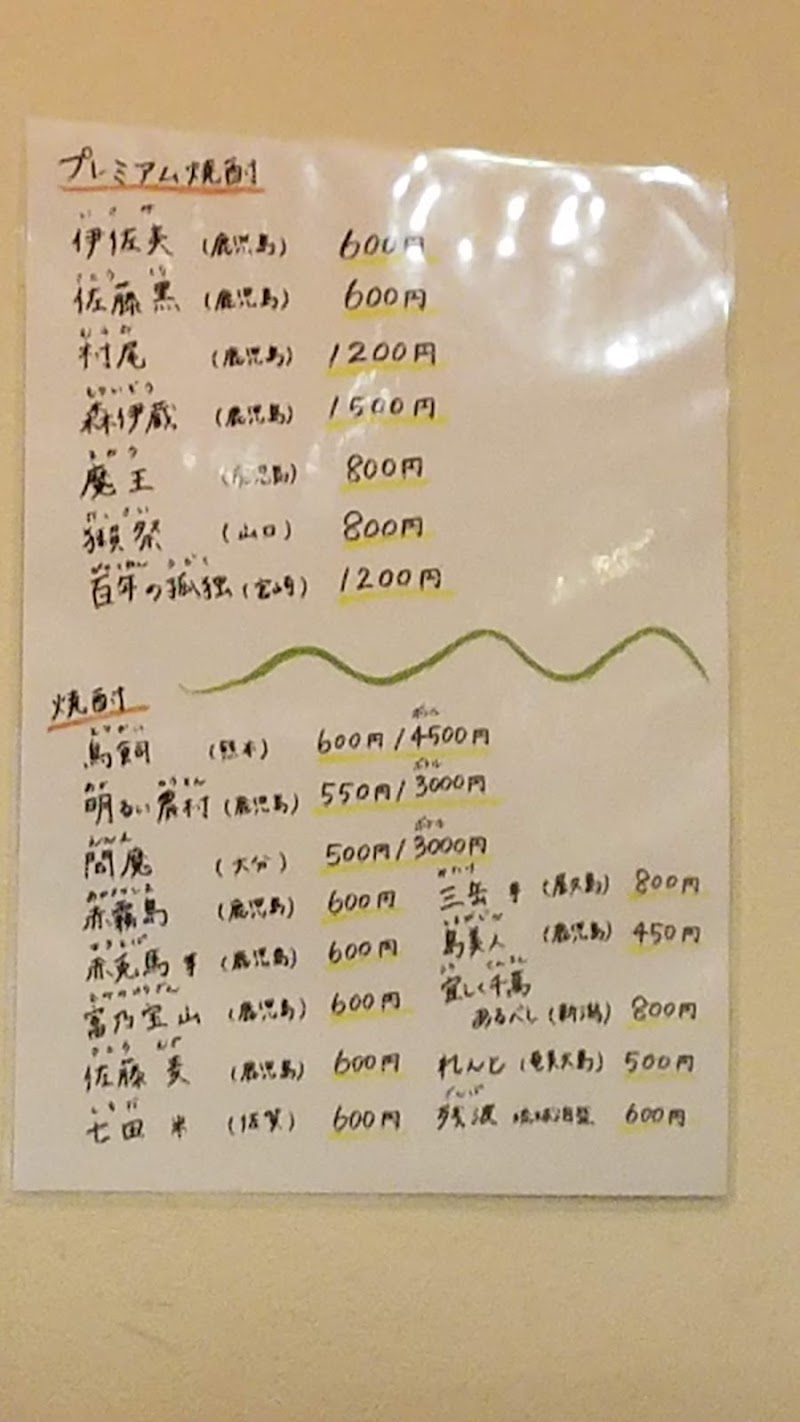 プレミアム焼酎
いさみ
伊佐美 (鹿児島) 600円
さとう くろ
佐藤 黒 (鹿児島) 600円
むらお
村尾 (鹿児島) 1200円
もりいぞう
森伊蔵 (鹿児島) 1500円
まおう
魔王 (鹿児島) 800円
だっさい
獺祭 (山口) 800円
ひゃくねん こどく
百年の孤独 (宮崎) 1200円
焼酎
とりかい
鳥飼 (熊本) 600円/4500円
ボトル
あか のうそん
明るい農村 (鹿児島) 550円/3000円
ボトル
えんま
閻魔 (大分) 500円/3000円
ボトル
赤霧島 (鹿児島) 600円
赤兎馬 芋 (鹿児島) 600円
富乃宝山 (鹿児島) 600円
さとう むぎ
佐藤 麦 (鹿児島) 600円
しちだ
七田 米 (佐賀) 600円
みたけ
三岳 芋 (屋久島) 800円
島美人 (鹿児島) 450円
宜しく千萬
あるべし (新潟) 800円
れんと (奄美大島) 500円
ざんぱ
残波 琉球泡盛 600円